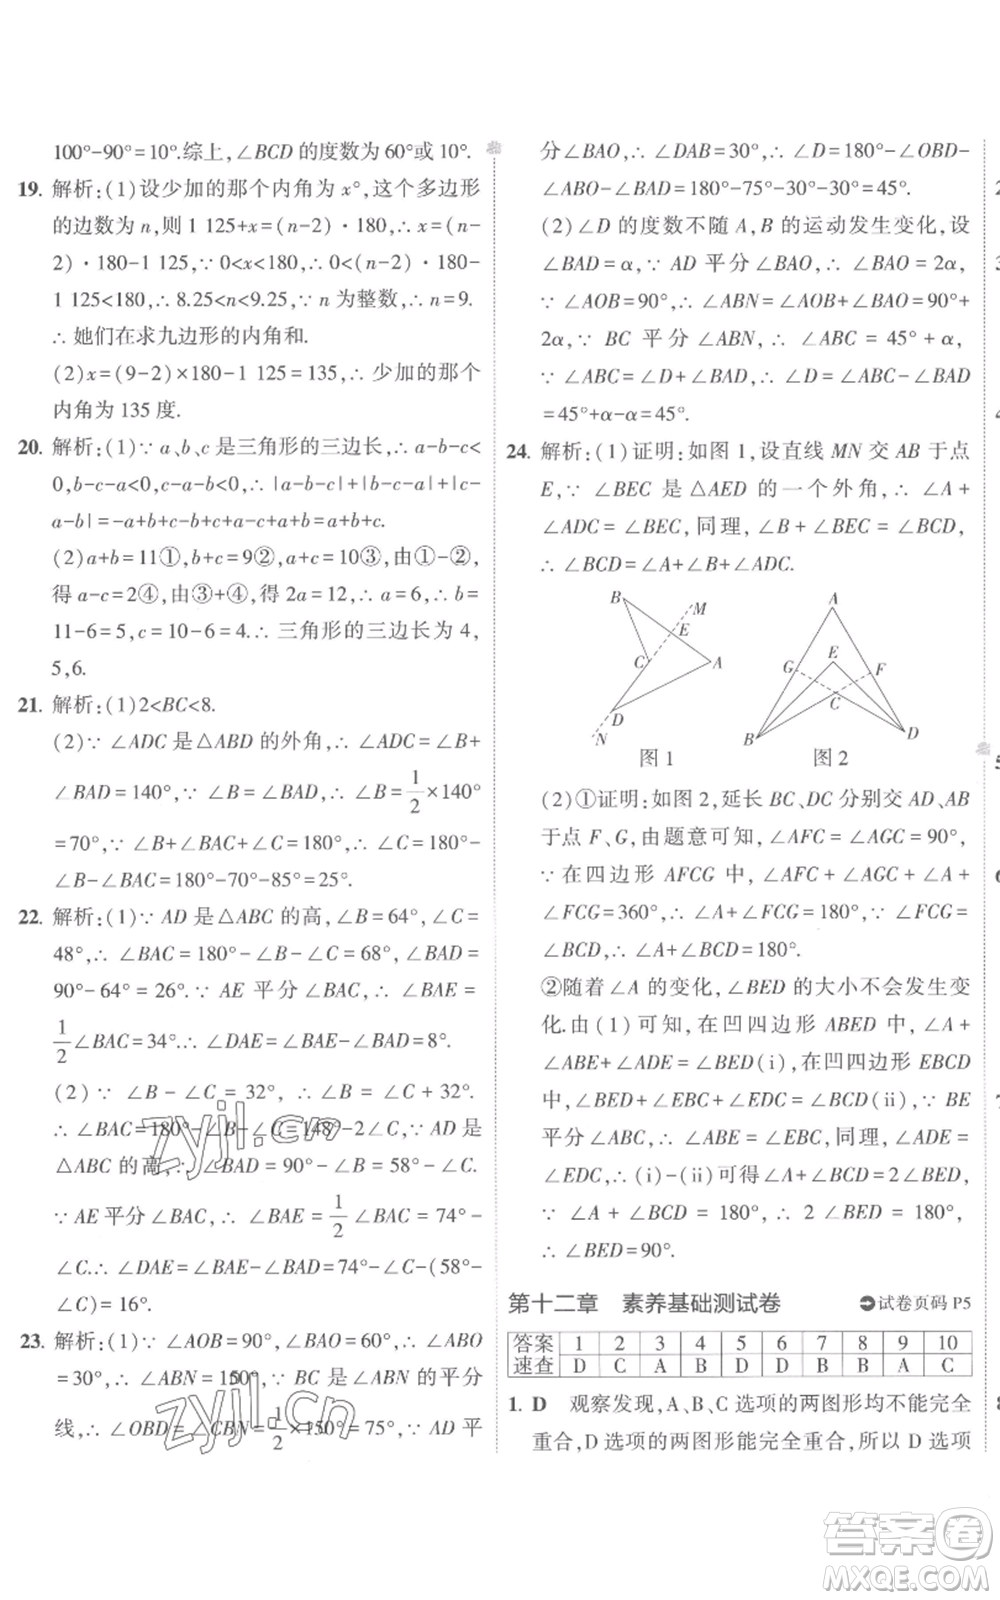 100°-90°=10°.综上,∠BCD的度数为60°或10°.
19. 解析:(1)设少加的那个内角为x°,这个多边形
的边数为n,则1 125+x=(n-2)·180,∴x=(n-
2)·180-1 125,∵0<x<180,∴0<(n-2)·180-
1 125<180,∴8.25<n<9.25,∵n为整数,∴n=9.
∴她们在求九边形的内角和.
(2)x=(9-2)×180-1 125=135,∴少加的那个
内角为135度.
20. 解析:(1)∵a、b、c是三角形的三边长,∴a-b-c<
0,b-c-a<0,c-a-b<0,∴|a-b-c|+|b-c-a|+|c-
a-b|=-a+b+c-b+c+a-c+a+b=a+b+c.
(2)a+b=11①,b+c=9②,a+c=10③,由①-②,
得a-c=2④,由③+④,得2a=12,∴a=6,∴b=
11-6=5,c=10-6=4.∴三角形的三边长为4,
5,6.
21. 解析:(1)2<BC<8.
(2)∵∠ADC是△ABD的外角,∴∠ADC=∠B+
∠BAD=140°,∵∠B=∠BAD,∴∠B=1/2×140°
=70°,∵∠B+∠BAC+∠C=180°,∴∠C=180°-
∠B-∠BAC=180°-70°-85°=25°.
22. 解析:(1)∵AD是△ABC的高,∠B=64°,∠C=
48°,∴∠BAC=180°-∠B-∠C=68°,∠BAD=
90°-64°=26°.∵AE平分∠BAC,∴∠BAE=
1/2∠BAC=34°.∴∠DAE=∠BAE-∠BAD=8°.
(2)∵∠B-∠C=32°,∴∠B=∠C+32°.
∴∠BAC=180°-∠B-∠C=148°-2∠C,∵AD是
△ABC的高,∴∠BAD=90°-∠B=58°-∠C.
∵AE平分∠BAC,∴∠BAE=1/2∠BAC=74°-
∠C.∴∠DAE=∠BAE-∠BAD=74°-∠C-(58°-
∠C)=16°.
23. 解析:(1)∵∠AOB=90°,∠BAO=60°,∴∠ABO
=30°,∴∠ABN=150°,∵BC是∠ABN的平分
线,∴∠OBD=∠CBN=1/2×150°=75°,∵AD平
分∠BAO,∴∠DAB=30°,∴∠D=180°-∠OBD-
∠ABO-∠BAD=180°-75°-30°-30°=45°.
(2)∠D的度数不随A,B的运动发生变化,设
∠BAD=α,∵AD平分∠BAO,∴∠BAO=2α,
∵∠AOB=90°,∴∠ABN=∠AOB+∠BAO=90°+
2α,∵BC平分∠ABN,∴∠ABC=45°+α,
∵∠ABC=∠D+∠BAD,∴∠D=∠ABC-∠BAD
=45°+α-α=45°.
24. 解析:(1)证明:如图1,设直线MN交AB于点
E,∵∠BEC是△AED的一个外角,∴∠A+
∠ADC=∠BEC,同理,∠B+∠BEC=∠BCD,
∴∠BCD=∠A+∠B+∠ADC.
B M E C A D N
图1
A G E F C B D
图2
(2)①证明:如图2,延长BC、DC分别交AD、AB
于点F、G,由题意可知,∠AFC=∠AGC=90°,
∵在四边形AFCG中,∠AFC+∠AGC+∠A+
∠FCG=360°,∴∠A+∠FCG=180°,∵∠FCG=
∠BCD,∴∠A+∠BCD=180°.
②随着∠A的变化,∠BED的大小不会发生变
化.由(1)可知,在凹四边形ABED中,∠A+
∠ABE+∠ADE=∠BED(i),在凹四边形EBCD
中,∠BED+∠EBC+∠EDC=∠BCD(ii),∵BE
平分∠ABC,∴∠ABE=∠EBC,同理,∠ADE=
∠EDC,∴(i)-(ii)可得∠A+∠BCD=2∠BED,
∵∠A+∠BCD=180°,∴2∠BED=180°,
∴∠BED=90°.
第十二章 素养基础测试卷 试卷页码 P5
答案 1 2 3 4 5 6 7 8 9 10
速查 D C A B D D B B A C
1. D 观察发现,A、B、C选项的两图形均不能完全
重合,D选项的两图形能完全重合,所以D选项
zyjl.cn
zyjl.cn
答案圈
MXQE.COM